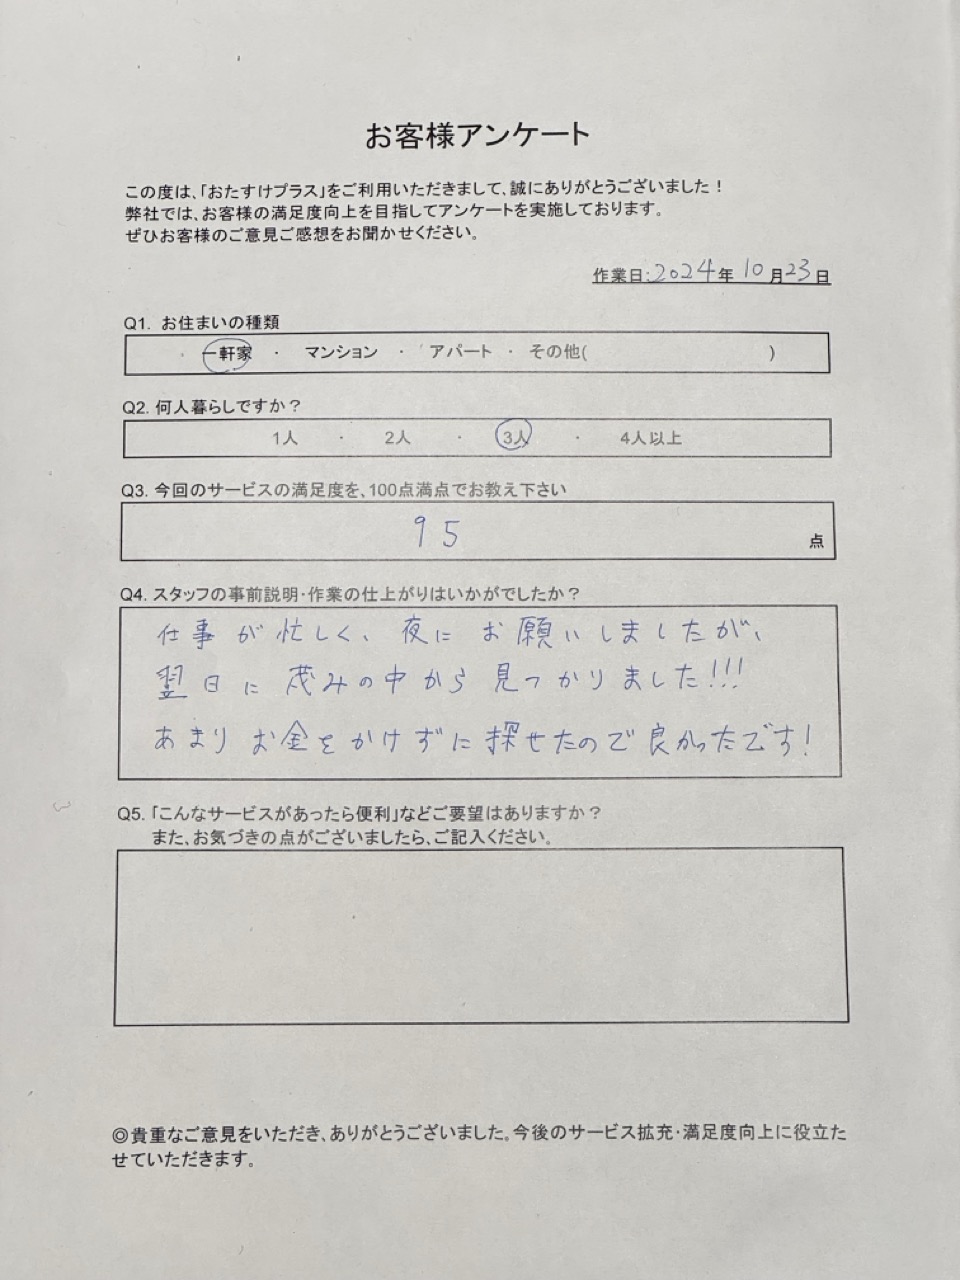 お客様アンケート
この度は、「おたすけプラス」をご利用いただきまして、誠にありがとうございました！
弊社では、お客様の満足度向上を目指してアンケートを実施しております。
ぜひお客様のご意見ご感想をお聞かせください。
作業日:2024年10月23日
Q1. お住まいの種類
・ 一軒家 ・ マンション ・ アパート ・ その他( )
Q2. 何人暮らしですか？
1人 ・ 2人 ・ 3人 ・ 4人以上
Q3. 今回のサービスの満足度を、100点満点でお教え下さい
95 点
Q4. スタッフの事前説明・作業の仕上がりはいかがでしたか？
仕事が忙しく、夜にお願いしましたが、
翌日に茂みの中から見つかりました!!!
あまりお金をかけずに探せたので良かったです!
Q5. 「こんなサービスがあったら便利」などご要望はありますか？
また、お気づきの点がございましたら、ご記入ください。
◎貴重なご意見をいただき、ありがとうございました。今後のサービス拡充・満足度向上に役立た
せていただきます。